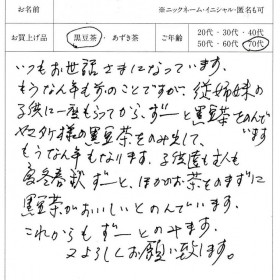 お名前 ※ニックネーム・イニシャル・匿名も可
お買上げ品 黒豆茶・あずき茶 ご年齢 20代・30代・40代
50代・60代・70代
いつもお世話さまになっています。
もうなん年も前のことですが、従姉妹の
子供に一度もらってから、ずーと黒豆茶をのんでいます
様の黒豆茶をのみ出して、
もうなん年もなります。子供達も主人も
ずーと、ほかのお茶をのまずに
黒豆茶がおいしいとのんでいます。
これからもずーとのみます。
又よろしくお願い致します。